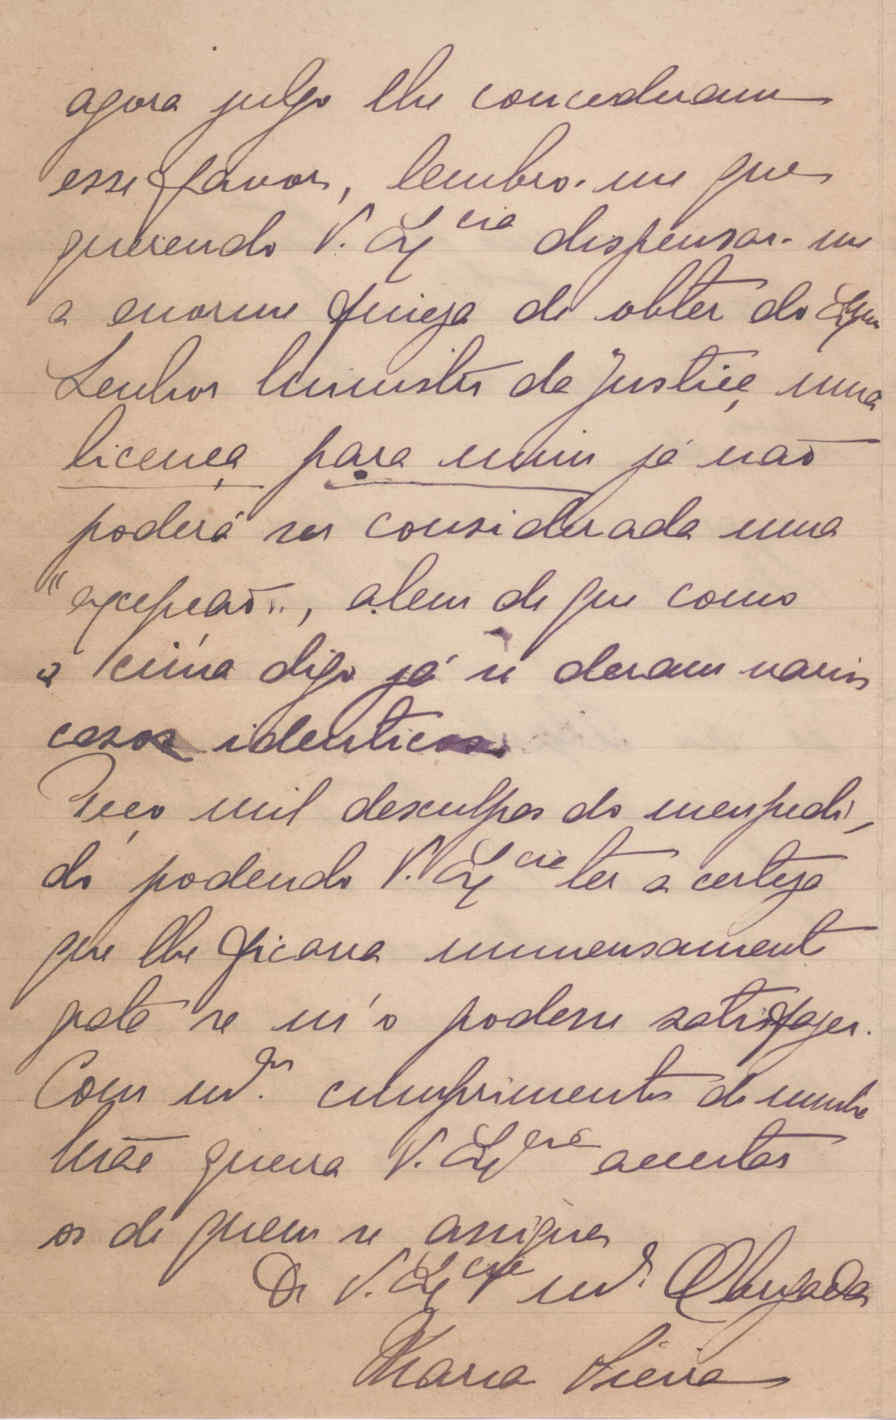 agora julgo lhe concederam
esse favor, lembro-me que
querendo V. Excia dispensar-me
a enorme fineza de obter do Exmo
Senhor Ministro da Justiça uma
licença para mim já não
poderá ser considerada uma
"excepção", alem de que como
a cima digo já se deram varios
casos identicos.
Peço mil desculpas do meu pedi-
do podendo V. Excia ter a certeza
que lhe ficava immensamente
grata se m'o podesse satisfazer.
Com mtos. cumprimentos de minha
Mãe queira V. Excia acceitar
os de quem se assigna
De V. Excia mto. Obrigada
Maria Vieira